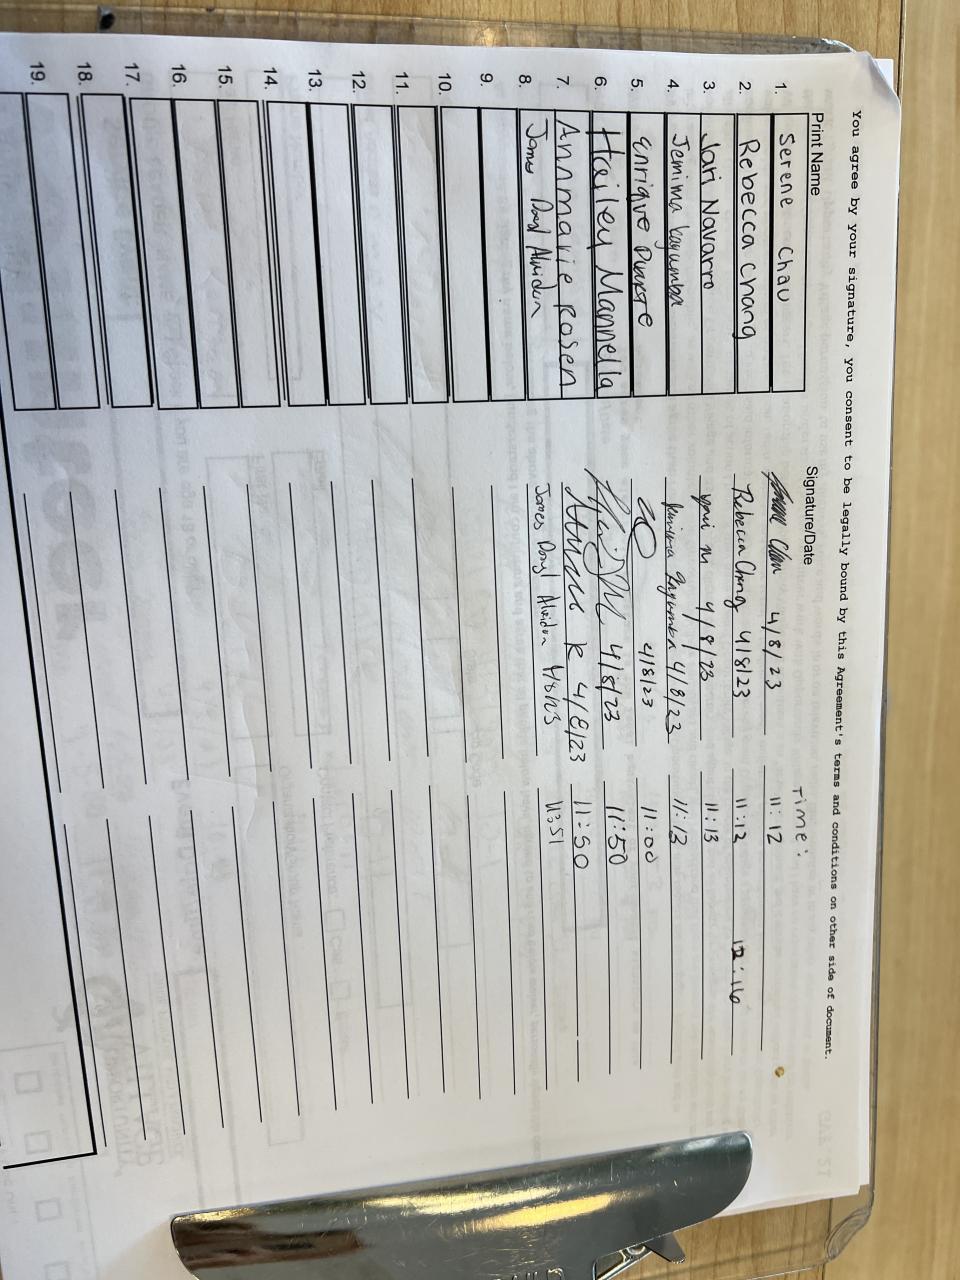 You agree by your signature, you consent to be legally bound by this Agreement's terms and conditions on other side of document.
Print Name Signature/Date Time:
1. Serene Chau 4/8/23 11:12
2. Rebecca Chang Rebecca Chang 4/8/23 11:12 12:16
3. Jari Navarro 4/8/23 11:13
4. Jemima Kayumba 4/8/23 11:13
5. Enrique Duarte 4/8/23 11:00
6. Hailey Mannella 4/8/23 11:50
7. Annmarie Rosen 4/8/23 11:50
8. James James 11:51
9.
10.
11.
12.
13.
14.
15.
16.
17.
18.
19.